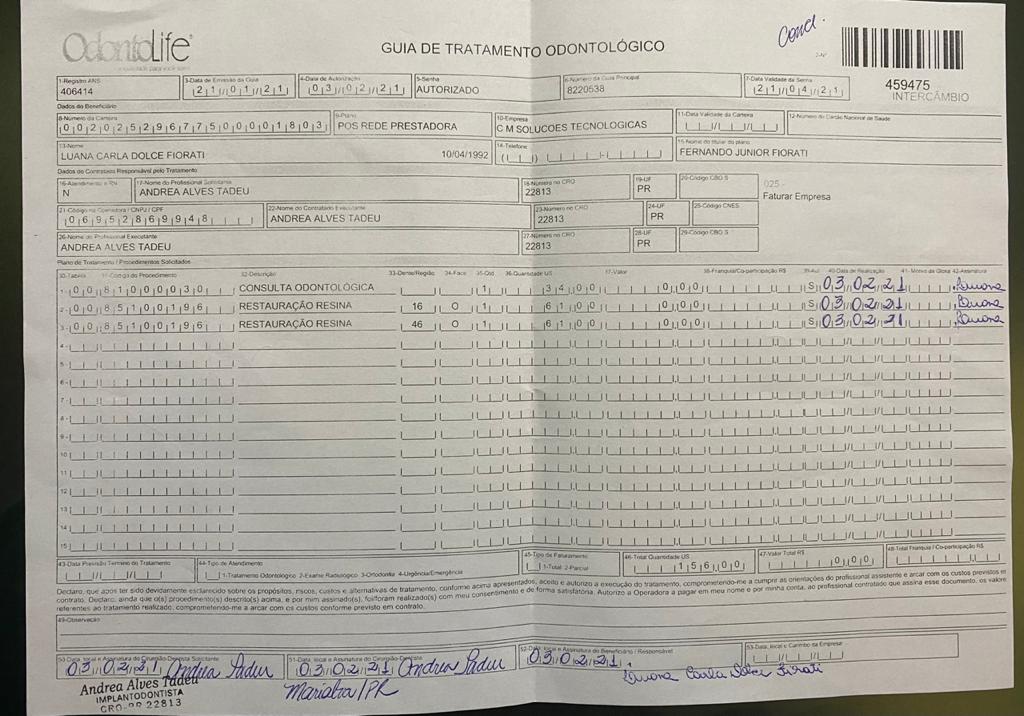 OdontoLife
GUIA DE TRATAMENTO ODONTOLÓGICO
Cond.
459475
INTERCÂMBIO
1-Registro ANS
406414
3-Data de Emissão da Guia
21/01/21
4-Data de Autorização
03/02/21
5-Senha
AUTORIZADO
6-Número da Guia Principal
8220538
7-Data Validade da Senha
21/04/21
Dados do Beneficiário
8-Número da Carteira
00202529677500001803
9-Plano
POS REDE PRESTADORA
10-Empresa
C M SOLUCOES TECNOLOGICAS
11-Data Validade da Carteira
12-Número do Cartão Nacional de Saúde
13-Nome
LUANA CARLA DOLCE FIORATI 10/04/1992
14-Telefone
15-Nome do titular do plano
FERNANDO JUNIOR FIORATI
Dados do Contratado Responsável pelo Tratamento
16-Atendimento a RN
N
17-Nome do Profissional Solicitante
ANDREA ALVES TADEU
18-Número no CRO
22813
19-UF
PR
20-Código CBO S
025 -
Faturar Empresa
21-Código na Operadora / CNPJ / CPF
06952869948
22-Nome do Contratado Executante
ANDREA ALVES TADEU
23-Número no CRO
22813
24-UF
PR
25-Código CNES
26-Nome do Profissional Executante
ANDREA ALVES TADEU
27-Número no CRO
22813
28-UF
PR
29-Código CBO S
Plano de Tratamento / Procedimentos Solicitados
30-Tabela 31-Código do Procedimento 32-Descrição 33-Dente/Região 34-Face 35-Qtd 36-Quantidade US 37-Valor 38-Franquia/Co-participação R$ 39-Aut 40-Data de Realização 41- Motivo da Glosa 42-Assinatura
1- 00 81000030 CONSULTA ODONTOLÓGICA 1 34,00 0,00 S 03/02/21 Luana
2- 00 85100196 RESTAURAÇÃO RESINA 16 O 1 61,00 0,00 S 03/02/21 Luana
3- 00 85100196 RESTAURAÇÃO RESINA 46 O 1 61,00 0,00 S 03/02/21 Luana
4-
5-
6-
7-
8-
9-
10-
11-
12-
13-
14-
15-
43-Data Previsão Término do Tratamento
44-Tipo de Atendimento
1-Tratamento Odontológico 2-Exame Radiológico 3-Ortodontia 4-Urgência/Emergência
45-Tipo de Faturamento
1-Total 2-Parcial
46-Total Quantidade US
156,00
47-Valor Total R$
0,00
48-Total Franquia / Co-participação R$
Declaro, que após ter sido devidamente esclarecido sobre os propósitos, riscos, custos e alternativas de tratamento, conforme acima apresentados, aceito e autorizo a execução do tratamento, comprometendo-me a cumprir as orientações do profissional assistente e arcar com os custos previstos em
contrato. Declaro, ainda que o(s) procedimento(s) descrito(s) acima, e por mim assinado(s), foi/foram realizado(s) com meu consentimento e de forma satisfatória. Autorizo a Operadora a pagar em meu nome e por minha conta, ao profissional contratado que assina esse documento, os valores
referentes ao tratamento realizado, comprometendo-me a arcar com os custos conforme previsto em contrato.
49-Observação
50-Data, local e Assinatura do Cirurgião-Dentista Solicitante
03/02/21 Andrea Tadeu
51-Data, local e Assinatura do Cirurgião-Dentista
03/02/21 Andrea Tadeu
Marialva/PR
52-Data, local e Assinatura do Beneficiário / Responsável
03/02/21.
Luana Carla Dolce Fiorati
53-Data, local e Carimbo da Empresa
Andrea Alves Tadeu
IMPLANTODONTISTA
CRO-PR 22813